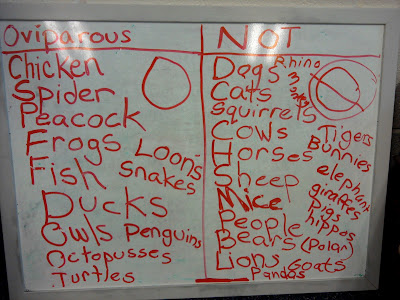 Oviparous
Chicken
Spider
Peacock
Frogs
Loons
Fish
Snakes
Ducks
Owls Penguins
Octopusses
Turtles
NOT
Dogs Rhino
Cats
Squirrels
Cows Tigers
Horses Bunnies
Sheep elephant
Mice giraffes
People Pigs
hippos
Bears (Polar)
Lions Goats
Pandas